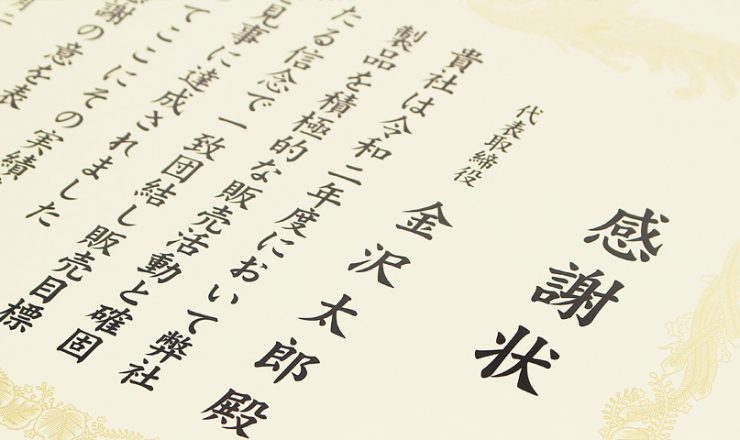 感謝状
代表取締役
金沢太郎殿
貴社は令和二年度において弊社
製品を積極的な販売活動と確固
たる信念で一致団結し販売目標
見事に達成されました
てここにその実績
謝の意を表
月二